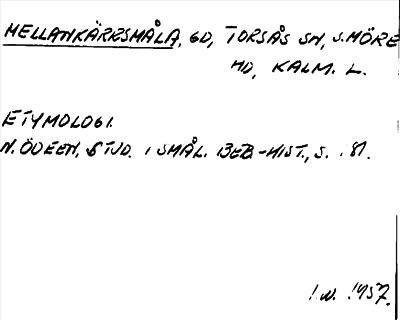 MELLANKÄRRSMÅLA, GD, TORSÅS SN, S. MÖRE
HD, KALM. L.
ETYMOLOGI.
N. ÖDEEN, STUD. I SMÅL. BEB-HIST., S. 181.
1957.